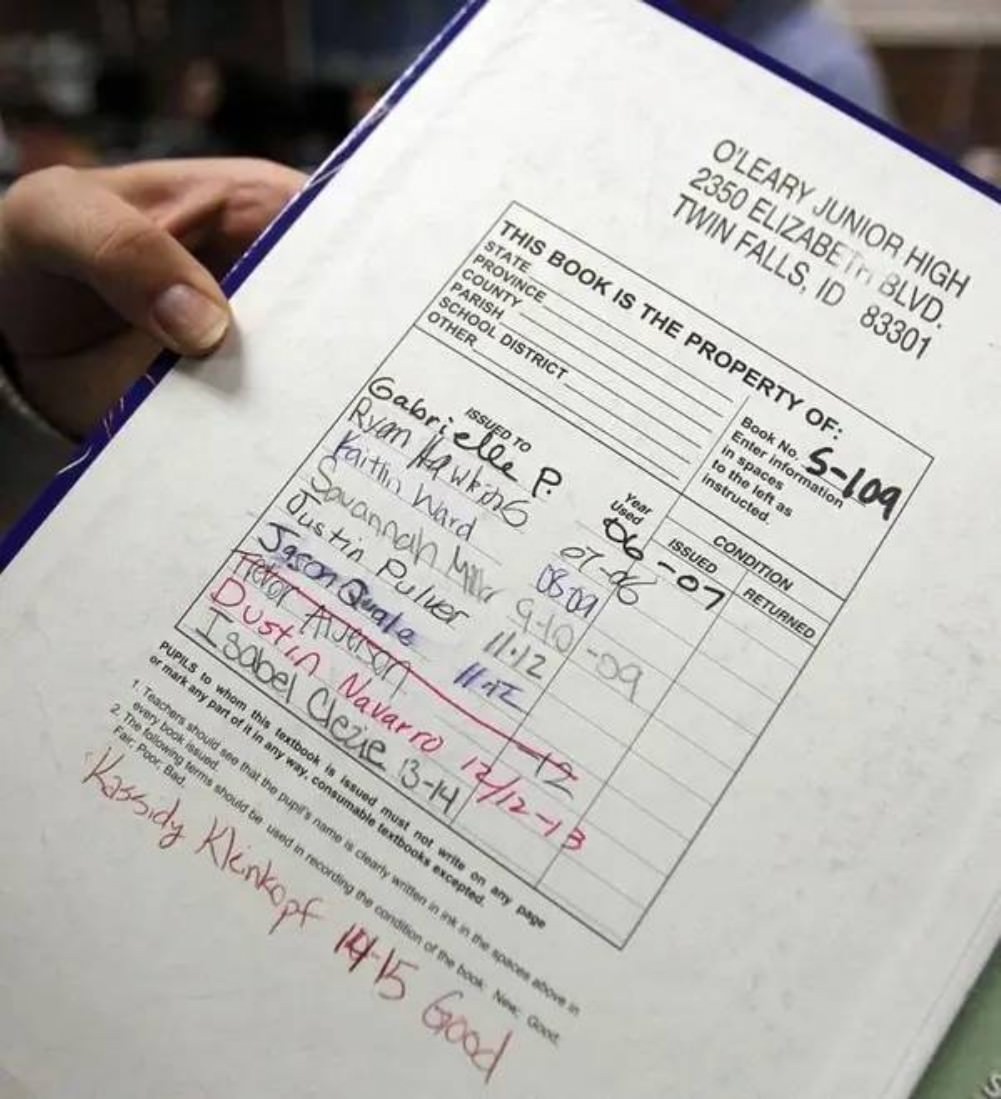 O'LEARY JUNIOR HIGH
2350 ELIZABETH BLVD.
TWIN FALLS, ID 83301
THIS BOOK IS THE PROPERTY OF:
STATE
PROVINCE
COUNTY
PARISH
SCHOOL DISTRICT
OTHER
Book No. S-109
Enter information
in spaces
to the left as
instructed.
ISSUED TO
Year
Used
CONDITION
ISSUED
RETURNED
Gabrielle P. 06-07
Ryan Hawking 07-08
Kaitlin Ward 08 09
Savannah Miller 9-10 -09
Justin Pulver 11.12
Jason Quale 11.12
Trevor -12
Dustin Navarro 12/12-13
Isabel Clezie 13-14
PUPILS to whom this textbook is issued must not write on any page
or mark any part of it in any way, consumable textbooks excepted.
1. Teachers should see that the pupil's name is clearly written in ink in the spaces above in
every book issued.
2. The following terms should be used in recording the condition of the book: New; Good;
Fair; Poor; Bad.
Kassidy Kleinkopf 14-15 Good